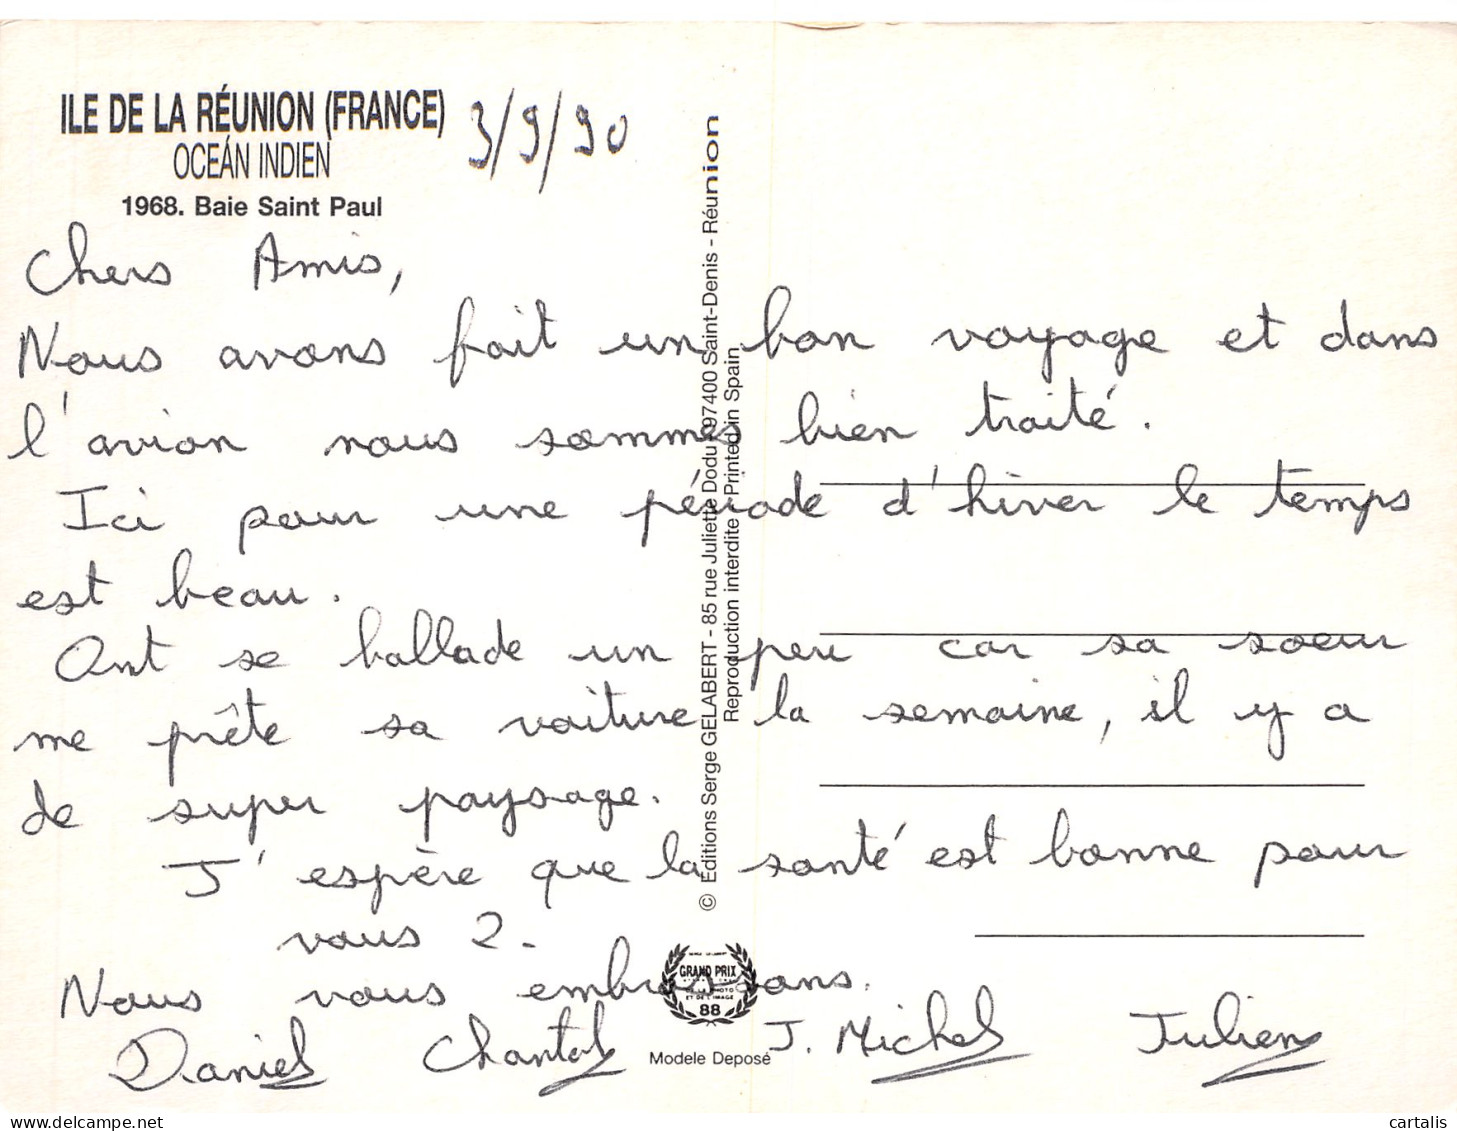 ILE DE LA RÉUNION (FRANCE)
OCEÁN INDIEN
1968. Baie Saint Paul
3/9/90
Chers Amis,
Nous avons fait un bon voyage et dans
l'avion nous sommes bien traité.
Ici pour une période d'hiver le temps
est beau.
Ont se ballade un peu car sa soeur
me prête sa voiture la semaine, il y a
de super paysage.
J'espère que la santé est bonne pour
vous 2.
Nous vous embrassons.
Daniel Chantal J. Michel Julien
© Editions Serge GELABERT - 85 rue Juliette Dodu - 97400 Saint-Denis - Réunion
Reproduction interdite Printed in Spain
GRAND PRIX
DE LA PHOTO
ET DE L'IMAGE
88
Modele Deposé
cartalis